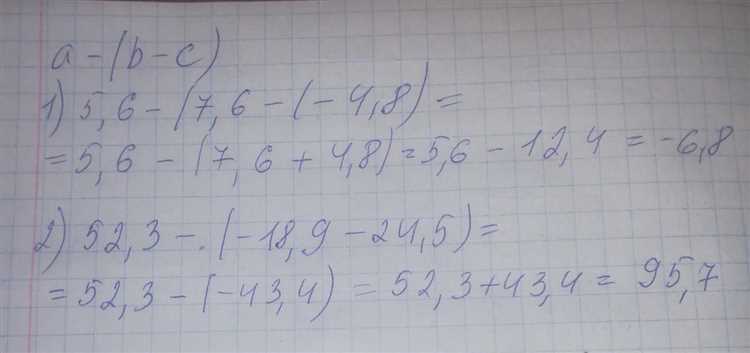 a - (b - c)
1) 5,6 - (7,6 - (-4,8) =
= 5,6 - (7,6 + 4,8) = 5,6 - 12,4 = -6,8
2) 52,3 - . (-18,9 - 24,5) =
= 52,3 - (-43,4) = 52,3 + 43,4 = 95,7